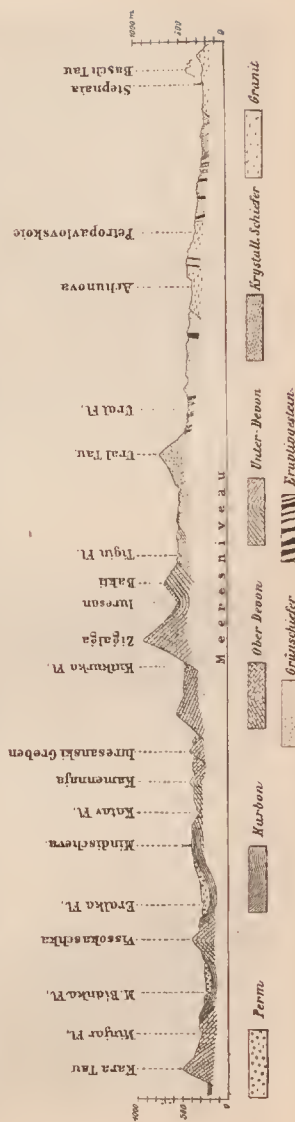 Kara Tau
Minjar Fl.
M. Bianka Fl.
Vissokaschka
Eralka Fl.
Mindischeva
Katav Fl.
Kamennaja
Iuresanski Greben
Kutkurka Fl.
Zigalga
Iuresan
Bakti
Tigin Fl.
Ural Tau
Ural Fl.
Arhunova
Petropavlovskoie
Stepnaia
Basch Tau
1000
500
0
1000 m.
500
0
Meeresniveau
Perm
Karbon
Ober Devon
Unter-Devon
Krystall. Schiefer
Granit
Grünschiefer
Eruptivgestein